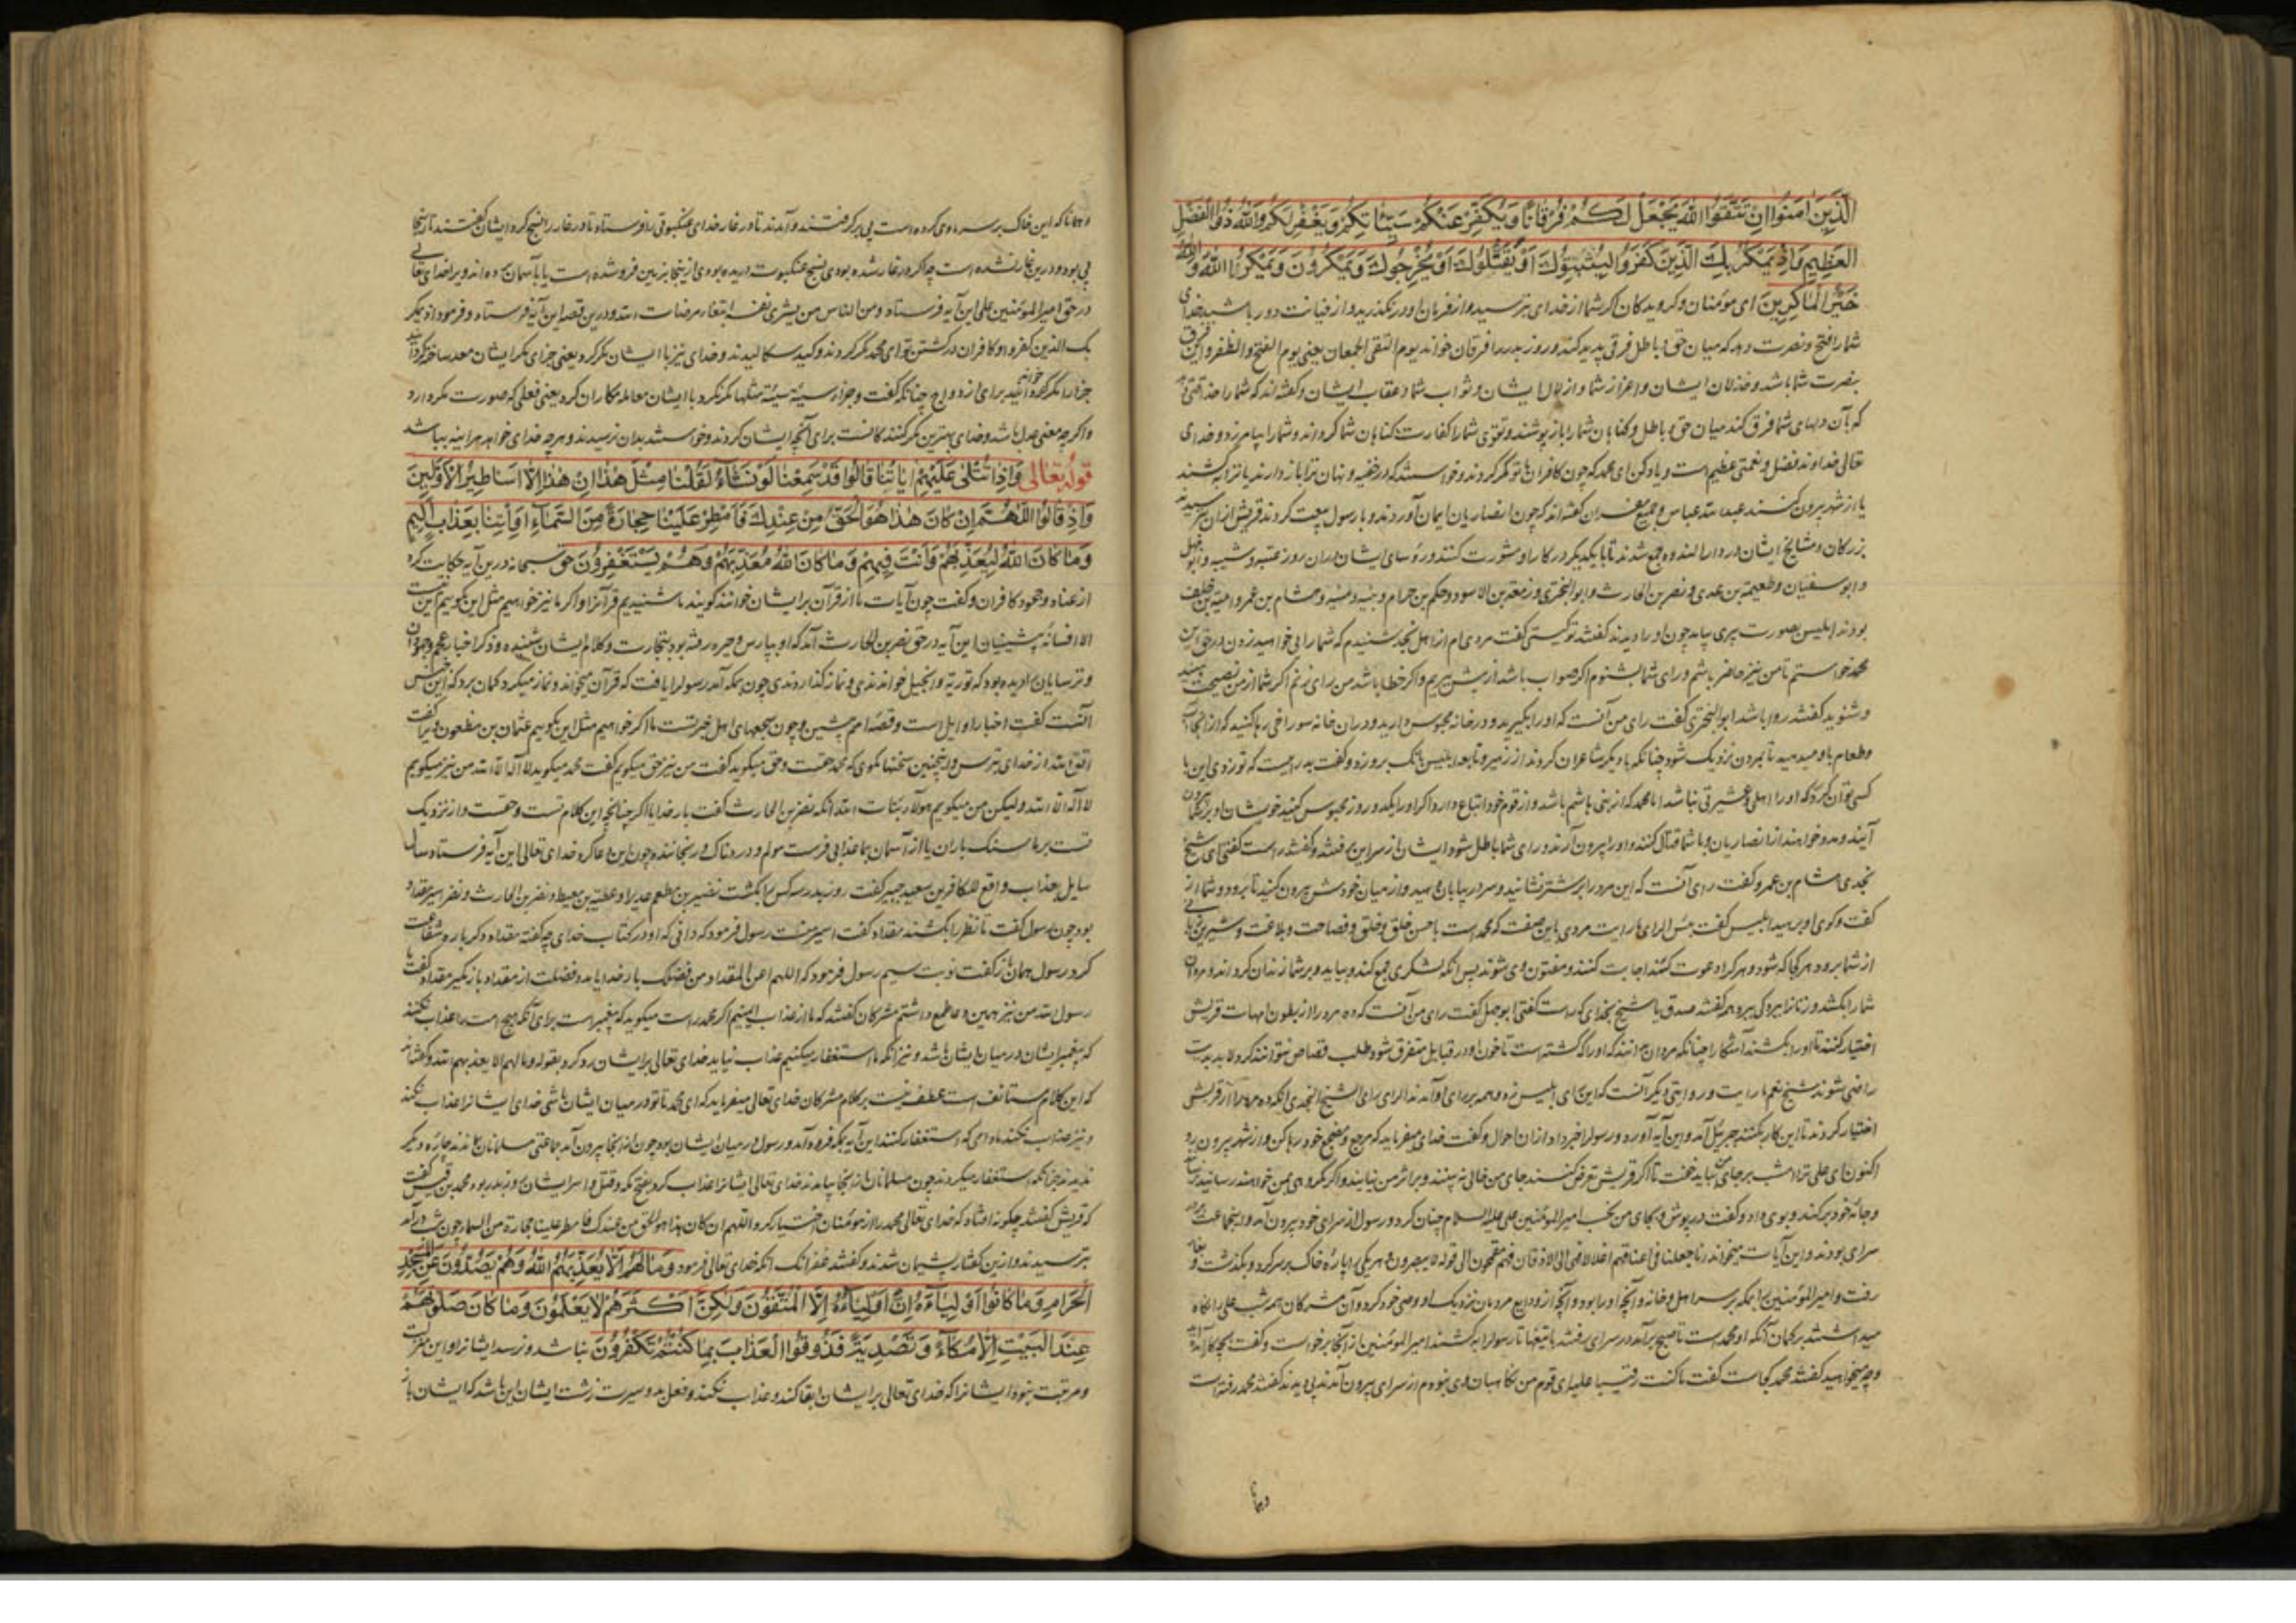 الَّذِينَ اٰمَنُوا اِنْ تَتَّقُوا اللّٰهَ يَجْعَلْ لَكُمْ فُرْقَانًا وَيُكَفِّرْ عَنْكُمْ سَيِّئَاتِكُمْ وَيَغْفِرْ لَكُمْ وَاللّٰهُ ذُو الْفَضْلِ
الْعَظِيمِ وَاِذْ يَمْكُرُ بِكَ الَّذِينَ كَفَرُوا لِيُثْبِتُوكَ اَوْ يَقْتُلُوكَ اَوْ يُخْرِجُوكَ وَيَمْكُرُونَ وَيَمْكُرُ اللّٰهُ وَاللّٰهُ
خَيْرُ الْمَاكِرِينَ ای مؤمنان و کرویدکان اکر شما از خدای بترسید و از فرمان او درنکذرید و از خیانت دور باشید خدای
شما را فتح و نصرت دهد که میان حق و باطل فرقی پدید کند و روز بدر را فرقان خواند یوم التقی الجمعان یعنی یوم الفتح و الظفر و این فرق
بنصرت شما باشد و خذلان ایشان و اعزاز شما و اذلال ایشان و ثواب شما و عقاب ایشان و کفته‌اند که شما را
که بآن دلهای شما فرق کند میان حق و باطل و کناهان شما را باز پوشند و تقوی شما را کفارت کناهان شما کرداند و شما را بیامرزد و خدای
تعالی خداوند فضل و نعمتی عظیم است و یاد کن ای محمد که چون کافران با تو مکر کردند و خواستند که در خفیه و نهان ترا باز دارند یا ترا بکشند
یا از شهر بیرون کنند عبد الله عباس و جمیع مفسران کفته‌اند که چون انصاریان ایمان آوردند و با رسول بیعت کردند قریش از آن بترسیدند
بزرکان و مشایخ ایشان در دار الندوه جمع شدند تا با یکدیکر در کار او مشورت کنند و رؤسای ایشان در آن روز عتبه و شیبه و ابو جهل
و ابو سفیان و طعیمة بن عدی و نضر بن الحارث و ابو البختری و زمعة بن الاسود و حکیم بن حزام و نبیه و منبه و هشام بن عمرو و امیه بن خلف
بودند ابلیس بصورت پیری بیامد چون او را دیدند کفتند تو کیستی کفت مردی‌ام از اهل نجد شنیدم که شما رایی خواهید زدن در حق این
محمد خواستم تا من نیز حاضر باشم و رای شما بشنوم اکر صواب باشد و اکر خطا باشد من رای زنم اکر شما از من نصیحت
و شنوید کفتند روا باشد ابو البختری کفت رای من آنست که او را بکیرید و در خانه محبوس دارید و در آن خانه سوراخی رها کنید که از آنجا آب
و طعام باو میدهید تا بمردن نزدیک شود چنانکه با دیکر شاعران کردند از زهیر و نابغه ابلیس بانک برو زد و کفت بد رایست که تو زدی این با
کسی توان کرد که او را اهلی و عشیرتی نباشد اما محمد که از بنی هاشم باشد و از قوم خود اتباع دارد اکر او را یکدو روز محبوس کنید خویشان او
آیند و مدد خواهند از انصاریان و با شما قتال کنند و او را بیرون آرند و رای شما باطل شود ایشان از سر این برفتند و کفتند راست کفتی ای شیخ
نجدی هشام بن عمرو کفت رای آنست که این مرد را بر شتر نشانید و سر در بیابان دهید و از میان خودش بیرون کنید تا برود و شما از
کفت و کوی او برهید ابلیس کفت بئس الرای رایت مردی باین صفت که محمد است با حسن خلق و خلق و فصاحت و بلاغت و شیرین
از شما برود هر کجا که شود و هر کرا دعوت کند اجابت کنند و مفتون وی شوند پس آنکه لشکری جمع کند و بیاید و بر شما زندان کرداند و مردان
شما را بکشد و زنان را برده کیرد همه کفتند صدق یا شیخ بخدای که راست کفتی ابو جهل کفت رای من آنست که ده مرد را از بطون امهات قریش
اختیار کنند تا او را بکشند آشکارا چنانکه مردان دانند که او را که کشته است تا خون او در قبایل متفرق شود و طلب قصاص نتوانند کرد لابد بدیت
راضی شوند شیخ نعم ما رایت و روایتی دیکر آنست که این رای ابلیس زد و همه بر رای او آمدند الرای رای الشیخ النجدی آنکه ده مرد را از قریش
اختیار کردند تا این کار بکنند جبرئیل آمد و این آیه آورد و رسول را خبر داد از آن احوال و کفت خدای میفرماید که مرجع و مضجع خود رها کن و از شهر بیرون رو
اکنون ای علی ترا امشب بر جای من بباید خفت تا اکر قریش تعرض کنند جای من خالی نه بینند و بر اثر من نیایند و اکر مکروهی بمن خواهند رسانید
و جامه خود بر کند و بوی داد و کفت در پوش و بجای من بخسب امیر المؤمنین علی علیه السلام چنان کرد و رسول از سرای خود بیرون آمد و این جماعت بر در
سرای بودند و این آیات میخواند انا جعلنا فی اعناقهم اغلالا فهی الی الاذقان فهم مقمحون الی قوله لا یبصرون و هر یکی را پاره خاک بر سر کرد و بکذشت و
رفت و امیر المؤمنین را بمکه بر سر اهل و خانه و آنچه او را بود و آنچه از ودایع مردمان نزدیک او وصی خود کرد و آن مشرکان همه شب علی را نکاه
میداشتند بر کمان آنکه او محمد است تا صبح برآمد در سرای رفتند با تیغها تا رسول را بکشند امیر المؤمنین از آنجا برخواست و کفت بچه کار آمدید
و چه میخواهید کفتند محمد کجاست کفت ما کنت رقیبا علیه ای قوم من نکاهبان وی نبودم از سرای بیرون آمدند پی دیدند کفتند محمد رفته است
و همانا
و همانا که این خاک بر سر ما وی کرده است پی بر کرفتند و آمدند تا در غار خدای عنکبوتی را فرستاد تا در غار را نسج کرد ایشان کفتند تا اینجا
پی بود و درین غار نشده است چه اکر در غار شده بودی نسج عنکبوت دریده بودی از اینجا بزمین فرو شده است یا بآسمان و برا خدای تعالی
در حق امیر المؤمنین علی این آیه فرستاد و من الناس من یشری نفسه ابتغاء مرضات الله و درین قصه این آیه فرستاد و فرمود و اذ یمکر
بک الذین کفروا و کافران در کشتن تو ای محمد مکر کردند و کید سکالیدند و خدای نیز با ایشان مکر کرد یعنی جزای مکر ایشان معد ساخته کرد
جزا را مکر خوانند برای ازدواج چنانکه کفت و جزاء سیئة سیئة مثلها مکر نکرد با ایشان معامله مکاران کرد یعنی فعلی که صورت مکر دارد
و اکر چه معنی عدل باشد و خدای بهترین مکر کنندکانست برای آنچه ایشان کردند و خواستند بدان نرسیدند و هر چه خدای خواهد هر آینه بباشد
قوله تعالی وَاِذَا تُتْلٰى عَلَيْهِمْ اٰيَاتُنَا قَالُوا قَدْ سَمِعْنَا لَوْ نَشَاءُ لَقُلْنَا مِثْلَ هٰذَا اِنْ هٰذَا اِلَّا اَسَاطِيرُ الْاَوَّلِينَ
وَاِذْ قَالُوا اللّٰهُمَّ اِنْ كَانَ هٰذَا هُوَ الْحَقَّ مِنْ عِنْدِكَ فَاَمْطِرْ عَلَيْنَا حِجَارَةً مِنَ السَّمَاءِ اَوِ ائْتِنَا بِعَذَابٍ اَلِيمٍ
وَمَا كَانَ اللّٰهُ لِيُعَذِّبَهُمْ وَاَنْتَ فِيهِمْ وَمَا كَانَ اللّٰهُ مُعَذِّبَهُمْ وَهُمْ يَسْتَغْفِرُونَ حق سبحانه درین آیه حکایت کرد
از عناد و جحود کافران و کفت چون آیات ما از قرآن بر ایشان خوانند کویند ما شنیدیم قرآن را و اکر ما نیز خواهیم مثل این کوییم این نیست
الا افسانه پیشینیان این آیه در حق نضر بن الحارث آمد که او بپارس و حیره رفته بود بتجارت و کلام ایشان شنیده و ذکر اخبار عجم و جهودان
و ترسایان دیده بود که توریة و انجیل خواندندی و نماز کذاردندی چون بمکه آمد رسول را یافت که قرآن میخواند و نماز میکرد کمان برد که این جنس
آنست کفت اخبار اوایل است و قصه امم پیشین و چون سجعهای اهل حیرتست ما اکر خواهیم مثل این کوییم عثمان بن مظعون ویرا کفت
اتق الله از خدای بترس و اینچنین سخنها مکوی که محمد حقست و حق میکوید کفت من نیز حق میکویم کفت محمد میکوید لا اله الا الله من نیز میکویم
لا اله الا الله ولیکن من میکویم هولاء بنات الله آنکه نضر بن الحارث کفت بار خدایا اکر چنانچه این کلام تست و حقست و از نزدیک
تست بر ما سنک باران یا از آسمان بما عذابی فرست مولم و دردناک و رنجاننده چون این دعا کرد خدای تعالی این آیه فرستاد سال
سایل بعذاب واقع للکافرین سعید جبیر کفت روز بدر سه کس را بکشت مطعم عدی را و عقبة بن معیط و نضر بن الحارث و نضر اسیر مقداد
بود چون رسول کفت تا نضر را بکشند مقداد کفت اسیر منست رسول فرمود که دانی که او در کتاب خدای چه کفته مقداد دکر باره شفاعت
کرد رسول همان باز کفت نوبت سیم رسول فرمود که اللهم اغن المقداد من فضلک بار خدایا
رسول الله من نیز همین طمع داشتم مشرکان کفتند که ما از عذاب ایمنیم اکر محمد راست میکوید که پیغمبر است برای آنکه هیچ امت را عذاب نکنند
که پیغمبر ایشان در میان ایشان باشد و نیز آنکه ما استغفار میکنیم عذاب نیاید خدای تعالی بر ایشان رد کرد بقوله و ما لهم الا یعذبهم الله و کفته‌اند
که این کلام مستانف است عطف نیست بر کلام مشرکان خدای تعالی میفرماید که ای محمد تا تو در میان ایشان باشی خدای ایشانرا عذاب نکند
و نیز عذاب نکند مادامی که استغفار کنند این آیه بمکه فرود آمد و رسول در میان ایشان بود چون از آنجا بیرون آمد جماعتی مسلمانان بماندند چاره دیکر
ندیدند جز آنکه استغفار میکردند چون مسلمانان از آنجا بیامدند خدای تعالی ایشانرا عذاب کرد بفتح مکه و قتل و اسر ایشان روز بدر بود محمد بن قیس کفت
که قریش کفتند چکونه افتاد که خدای تعالی محمد را از مؤمنان اختیار کرد اللهم ان کان هذا هو الحق من عندک فامطر علینا حجارة من السماء چون شب درآمد
بترسیدند و از این کفتار پشیمان شدند و کفتند غفرانک آنکه خدای تعالی فرمود وَمَا لَهُمْ اَلَّا يُعَذِّبَهُمُ اللّٰهُ وَهُمْ يَصُدُّونَ عَنِ الْمَسْجِدِ
الْحَرَامِ وَمَا كَانُوا اَوْلِيَاءَهُ اِنْ اَوْلِيَاؤُهُ اِلَّا الْمُتَّقُونَ وَلٰكِنَّ اَكْثَرَهُمْ لَا يَعْلَمُونَ وَمَا كَانَ صَلٰوتُهُمْ
عِنْدَ الْبَيْتِ اِلَّا مُكَاءً وَتَصْدِيَةً فَذُوقُوا الْعَذَابَ بِمَا كُنْتُمْ تَكْفُرُونَ نباشد و نرسد ایشانرا و این منزلت
و مرتبت نبود ایشانرا که خدای تعالی بر ایشان ابقا کند و عذاب نکند و فعل بد و سیرت زشت ایشان این باشد که ایشان باز